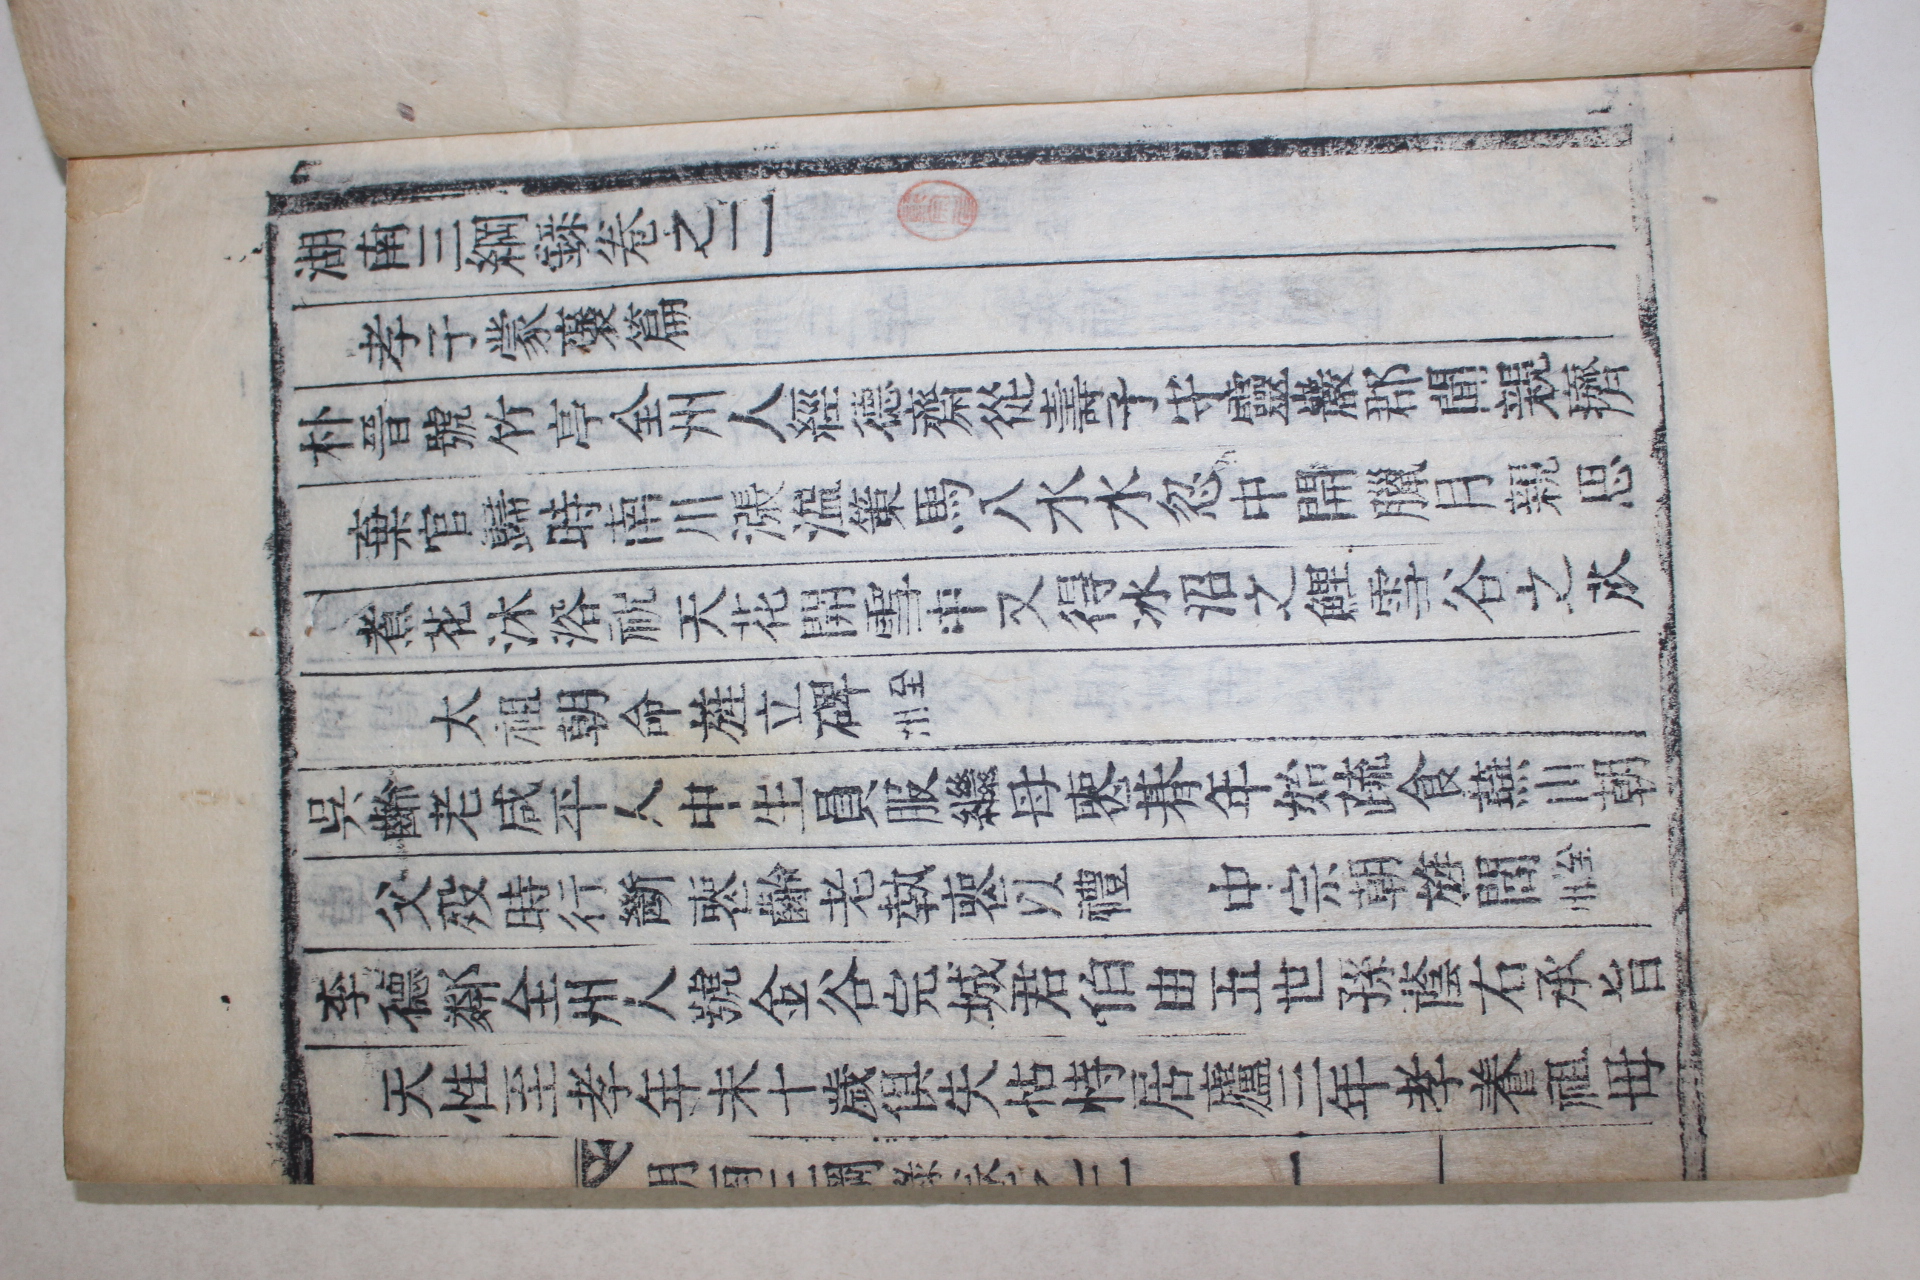 湖南三綱錄卷之二
孝子蒙褒篇
朴晉號竹亭全州人經德齋從壽子守靈巖郡聞親癠
棄官歸時南川漲溢策馬入水水忽中開臘月親思
煮花沐浴祝天花開雪中又得氷沼之鯉雪谷之苽
太祖朝命旌立碑全州
吳齡老咸平人中生員服繼母喪朞年始疏食鹽川朝
父歿時行斷喪齡老執喪以禮 中宗朝旌閭全州
李德鄰全州人號金谷完城君伯由五世孫蔭右承旨
天性至孝年未十歲俱失怙恃居廬三年孝養祖母
月南三綱錄卷之二 一